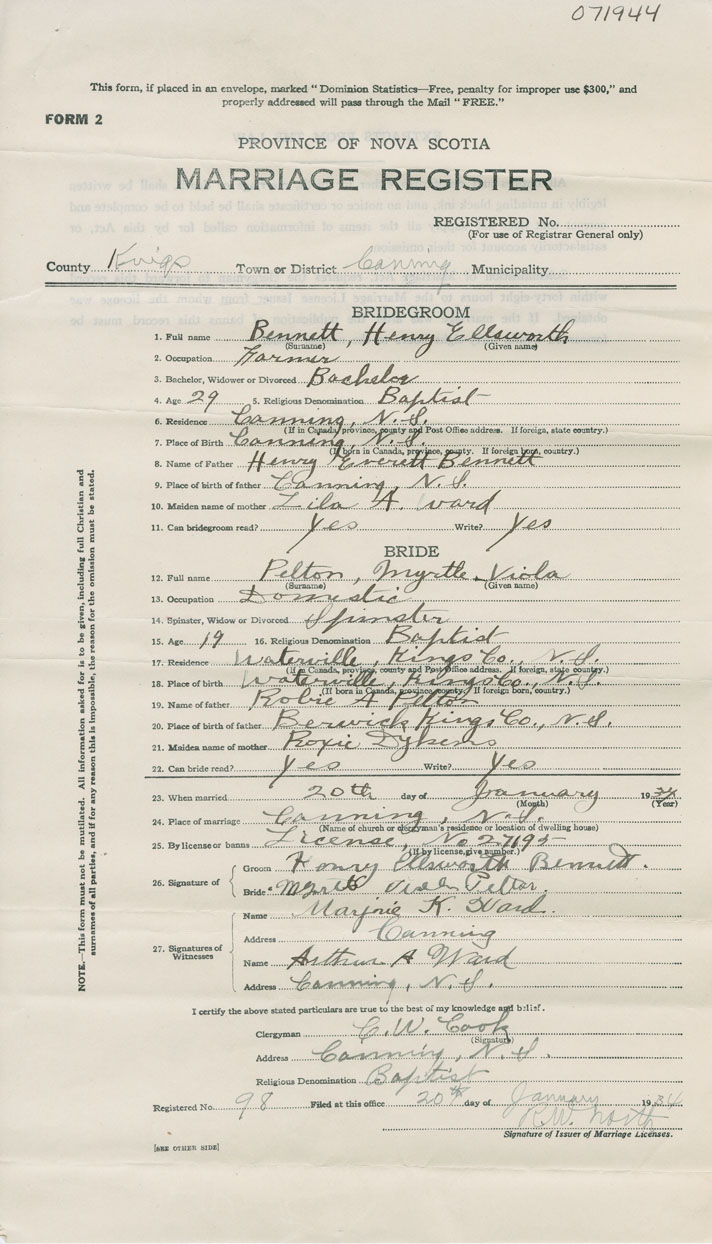 071944
This form, if placed in an envelope, marked "Dominion Statistics—Free, penalty for improper use $300," and
properly addressed will pass through the Mail "FREE."
FORM 2
PROVINCE OF NOVA SCOTIA
MARRIAGE REGISTER
REGISTERED No.
(For use of Registrar General only)
County Kings Town or District Canning Municipality
BRIDEGROOM
1. Full name Bennett, Henry Ellsworth
(Surname) (Given name)
2. Occupation Farmer
3. Bachelor, Widower or Divorced Bachelor
4. Age 29 5. Religious Denomination Baptist
6. Residence Canning, N.S.
(If in Canada, province, county and Post Office address. If foreign, state country.)
7. Place of Birth Canning, N.S.
(If born in Canada, province, county. If foreign born, country.)
8. Name of Father Henry Everett Bennett
9. Place of birth of father Canning, N.S.
10. Maiden name of mother Lila A. Ward
11. Can bridegroom read? Yes Write? Yes
BRIDE
12. Full name Pelton, Myrtle Viola
(Surname) (Given name)
13. Occupation Domestic
14. Spinster, Widow or Divorced Spinster
15. Age 19 16. Religious Denomination Baptist
17. Residence Waterville, Kings Co., N.S.
(If in Canada, province, county and Post Office address. If foreign, state country.)
18. Place of birth Waterville, Kings Co., N.S.
(If born in Canada, province, county. If foreign born, country.)
19. Name of father Robie A Pelton
20. Place of birth of father Berwick Kings Co., N.S.
21. Maiden name of mother Roxie Dykens
22. Can bride read? Yes Write? Yes
23. When married 20th day of January 1934
(Month) (Year)
24. Place of marriage Canning, N.S.
(Name of church or clergyman's residence or location of dwelling house)
25. By license or banns License, No 27195
(If by license, give number.)
26. Signature of Groom Henry Ellsworth Bennett.
Bride Myrtle Viola Pelton.
27. Signatures of Witnesses
Name Marjorie K. Ward.
Address Canning
Name Arthur A Ward
Address Canning, N.S.
I certify the above stated particulars are true to the best of my knowledge and belief.
Clergyman C. W. Cook
(Signature)
Address Canning, N.S.
Religious Denomination Baptist
Registered No. 98 Filed at this office 20th day of January 1934
R.W. North
Signature of Issuer of Marriage Licenses.
[SEE OTHER SIDE]
NOTE.—This form must not be mutilated. All information asked for is to be given, including full Christian and
surnames of all parties, and if for any reason this is impossible, the reason for the omission must be stated.